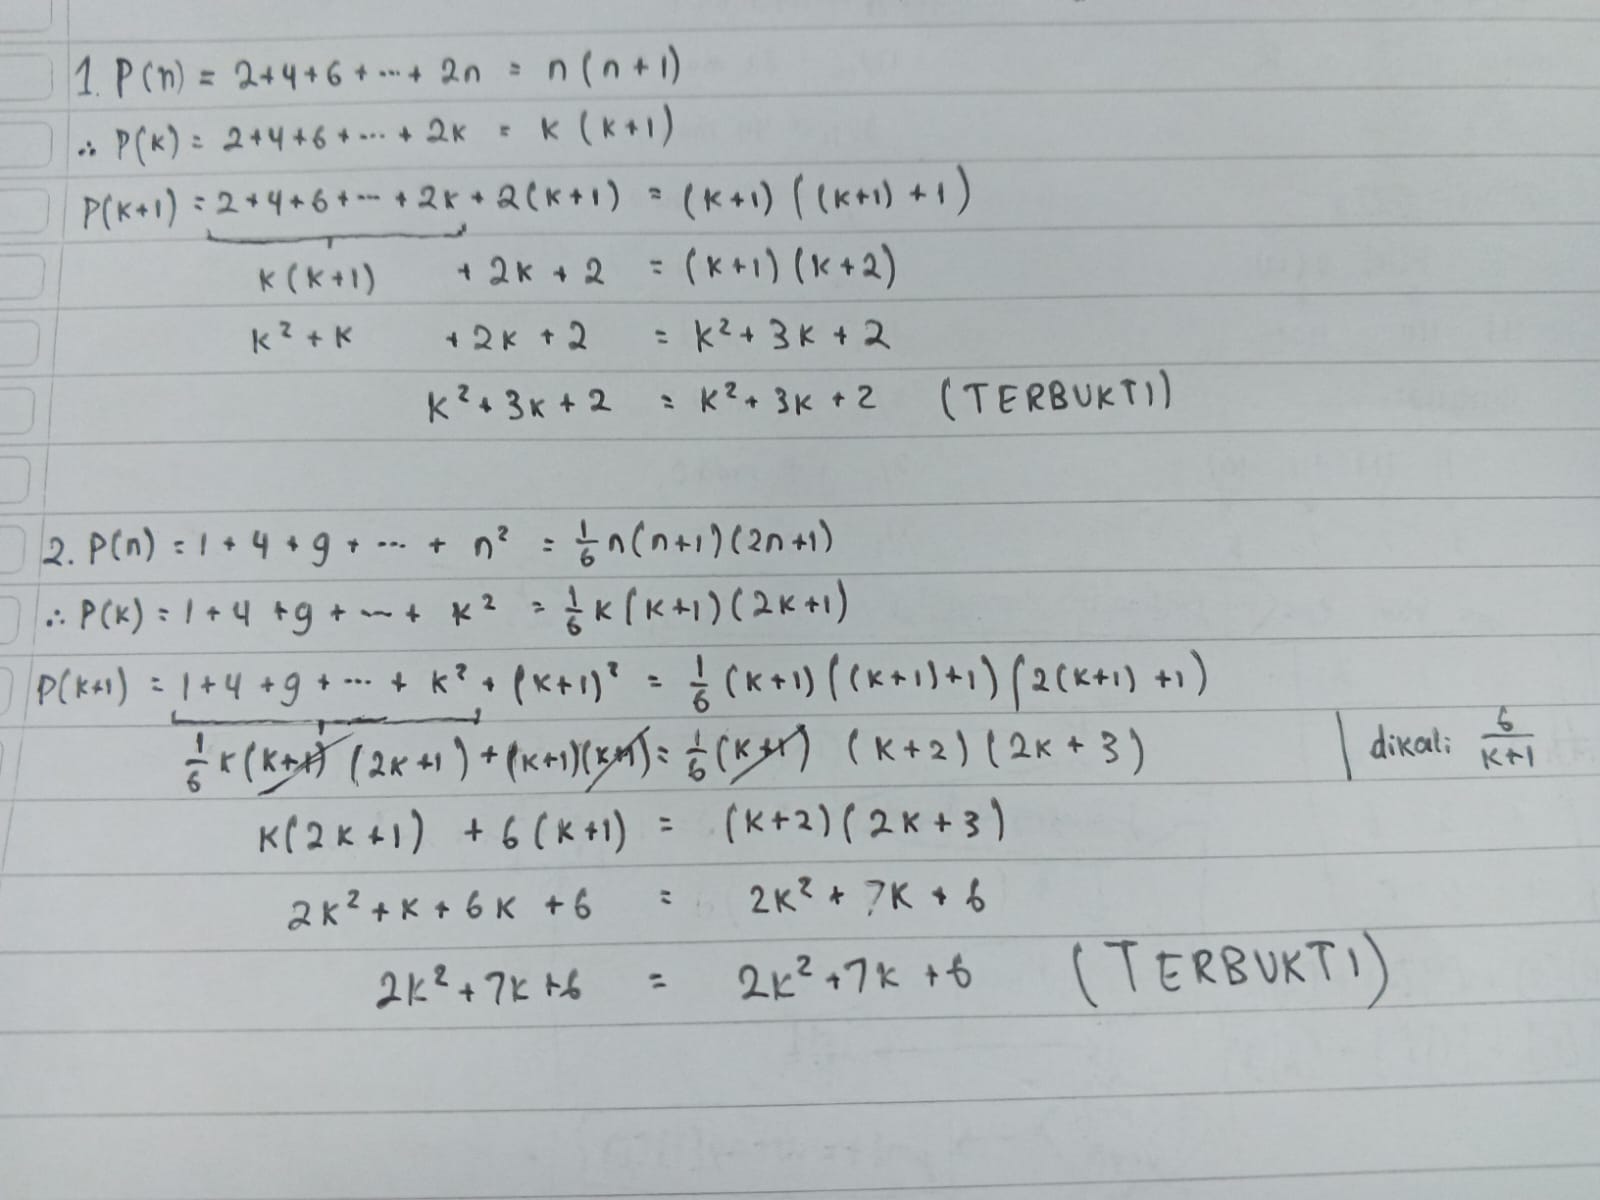 1. P(n) = 2+4+6+...+ 2n = n(n+1)
∴ P(k) = 2+4+6+...+ 2k = k(k+1)
P(k+1) = 2+4+6+...+2k+2(k+1) = (k+1)((k+1)+1)
k(k+1) + 2k + 2 = (k+1)(k+2)
k² + k + 2k + 2 = k² + 3k + 2
k² + 3k + 2 = k² + 3k + 2 (TERBUKTI)
2. P(n) = 1 + 4 + 9 + ... + n² = 1/6 n(n+1)(2n+1)
∴ P(k) = 1 + 4 + 9 + ... + k² = 1/6 k(k+1)(2k+1)
P(k+1) = 1+4+9+...+ k² + (k+1)² = 1/6 (k+1)((k+1)+1)(2(k+1)+1)
1/6 k(k+1)(2k+1) + (k+1)(k+1) = 1/6 (k+1) (k+2)(2k+3) | dikali 6/k+1
k(2k+1) + 6(k+1) = (k+2)(2k+3)
2k² + k + 6k + 6 = 2k² + 7k + 6
2k² + 7k + 6 = 2k² + 7k + 6 (TERBUKTI)